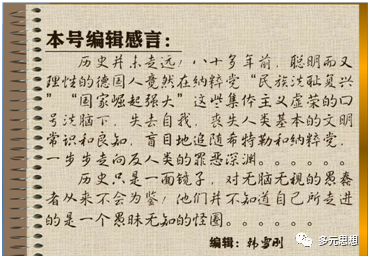 本号编辑感言：
历史并未走远！八十多年前，聪明而又
理性的德国人竟然在纳粹党“民族洗耻复兴
”“国家崛起强大”这些集体主义虚荣的口
号洗脑下，失去自我，丧失人类基本的文明
常识和良知，盲目地追随希特勒和纳粹党，
一步步走向反人类的罪恶深渊。。。。。。
历史只是一面镜子，对无脑无视的愚蠢
者从来不会为鉴！他们并不知道自己所走进
的是一个愚昧无知的怪圈。。。。。。
编辑：韩雪刚
多元思想